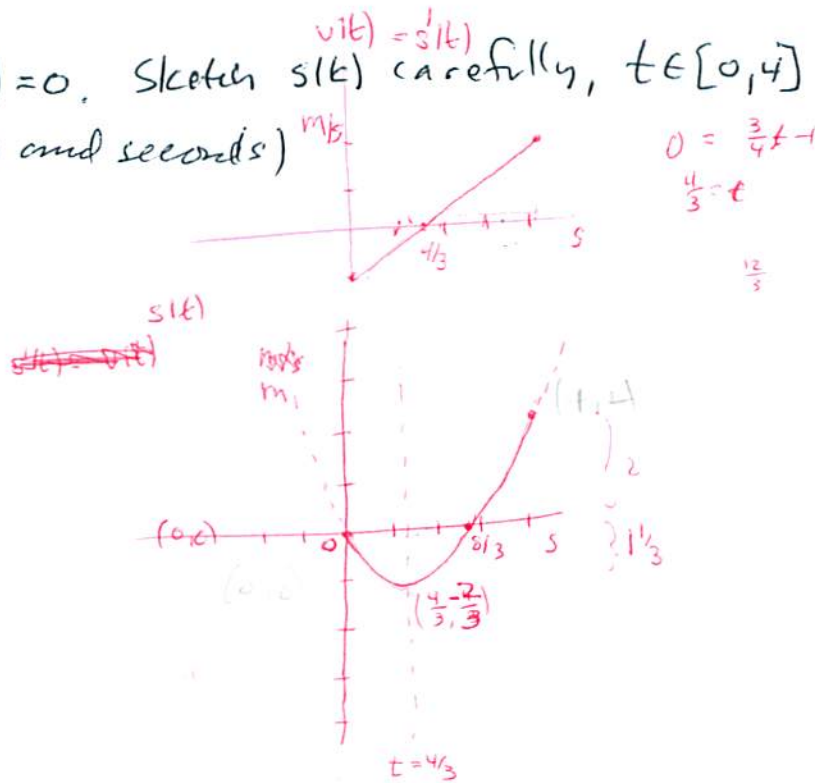 v(t) = s'(t)
=0. Sketch s(t) carefully, t∈[0,4]
and seconds)
m/s
0 = 3/4 t -1
4/3 = t
4/3
s
s(t)
m
0
8/3
s
2
1 1/3
(4/3, -2/3)
t = 4/3